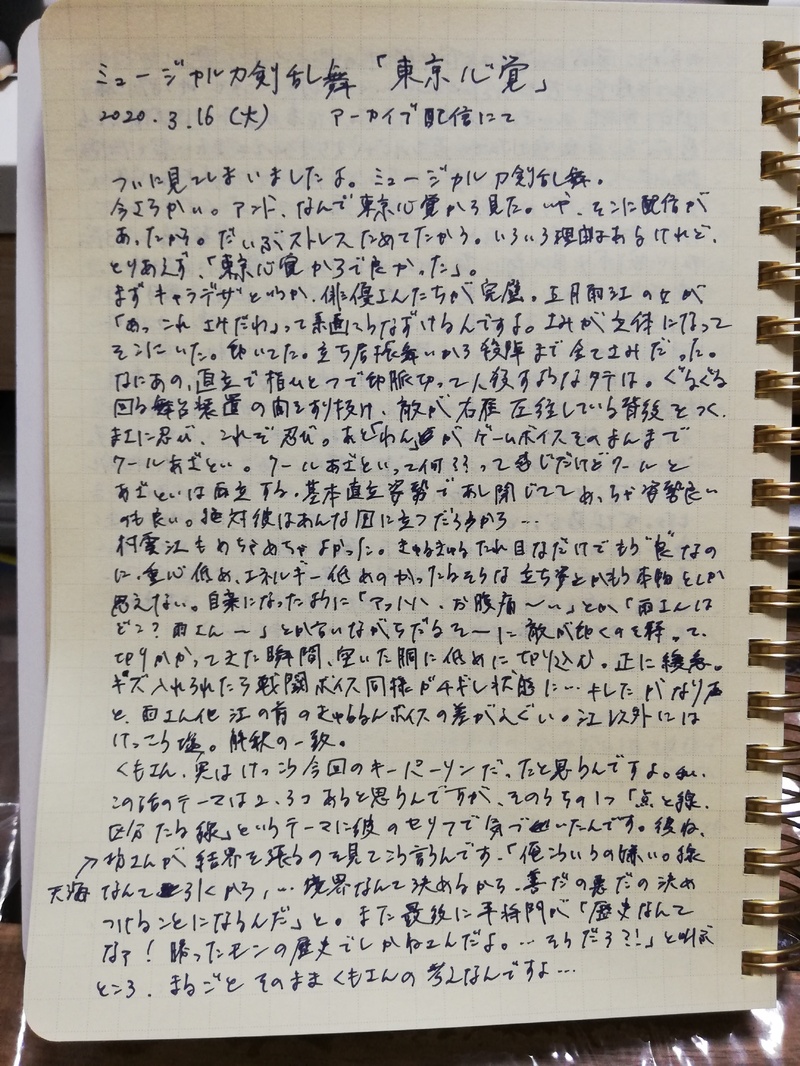 ミュージカル刀剣乱舞「東京心覚」
2020.3.16(火) アーカイブ配信にて
ついに見てしまいましたよ。ミュージカル刀剣乱舞。
今さらかい。アンド、なんで東京心覚から見た。いや、そこに配信が
あったから。だいぶストレスためてたから。いろいろ理由はあるけれど、
とりあえず、「東京心覚からで良かった」。
まずキャラデザというか、俳優さんたちが完璧。五月雨江の女が
「あっこれ さみだわ」って素直にうなずけるんですよ。さみが立体になって
そこにいた。動いてた。立ち居振舞いから殺陣まで全てさみだった。
なにあの、直立で指ひとつで動脈切って人殺すようなタテは。ぐるぐる
回る舞台装置の間をすり抜け、敵が右往左往している背後をつく。
まさに忍び、これぞ忍び。あと「わん」がゲームボイスそのまんまで
クールあざとい。クールあざといって何??って感じだけどクールと
あざといは両立する。基本直立姿勢であし閉じててめっちゃ姿勢良い
のも良い。絶対彼はあんな風に立つだろうから…
村雲江もめちゃめちゃよかった。きゅるきゅるたれ目なだけでもう"良"なの
に、重心低め、エネルギー低めのかったるそうな立ち姿とかもう本物としか
思えない。自棄になったように「アッハハ、お腹痛〜い」とか「雨さんは
どこ?雨さん〜」とか言いながらだるそ〜に敵が動くのを待って、
切りかかってきた瞬間、空いた胴に低めに切り込む。正に緩急。
キズ入れられたら戦闘ボイス同様ガチギレ状態に…キレたがなり声
と、雨さん他 江の前のきゅるるんボイスの差がえぐい。江以外には
けっこう塩。解釈の一致。
くもさん、実はけっこう今回のキーパーソンだったと思うんですよ。
この話のテーマは2、3つあると思うんですが、そのうちの1つ「点と線、
区分たる線」というテーマに彼のセリフで気づいたんです。彼ね、
→坊さんが結界を張るのを見てこう言うんです、「俺こういうの嫌い。線
天海
なんて引くから、…境界なんて決めるから、善だの悪だの決め
つけることになるんだ」と。また最後に平将門が「歴史なんて
なァ!勝ったモンの歴史でしかねェんだよ。…そうだろ?!」と叫ぶ
ところ、まるごとそのままくもさんの考えなんですよ…